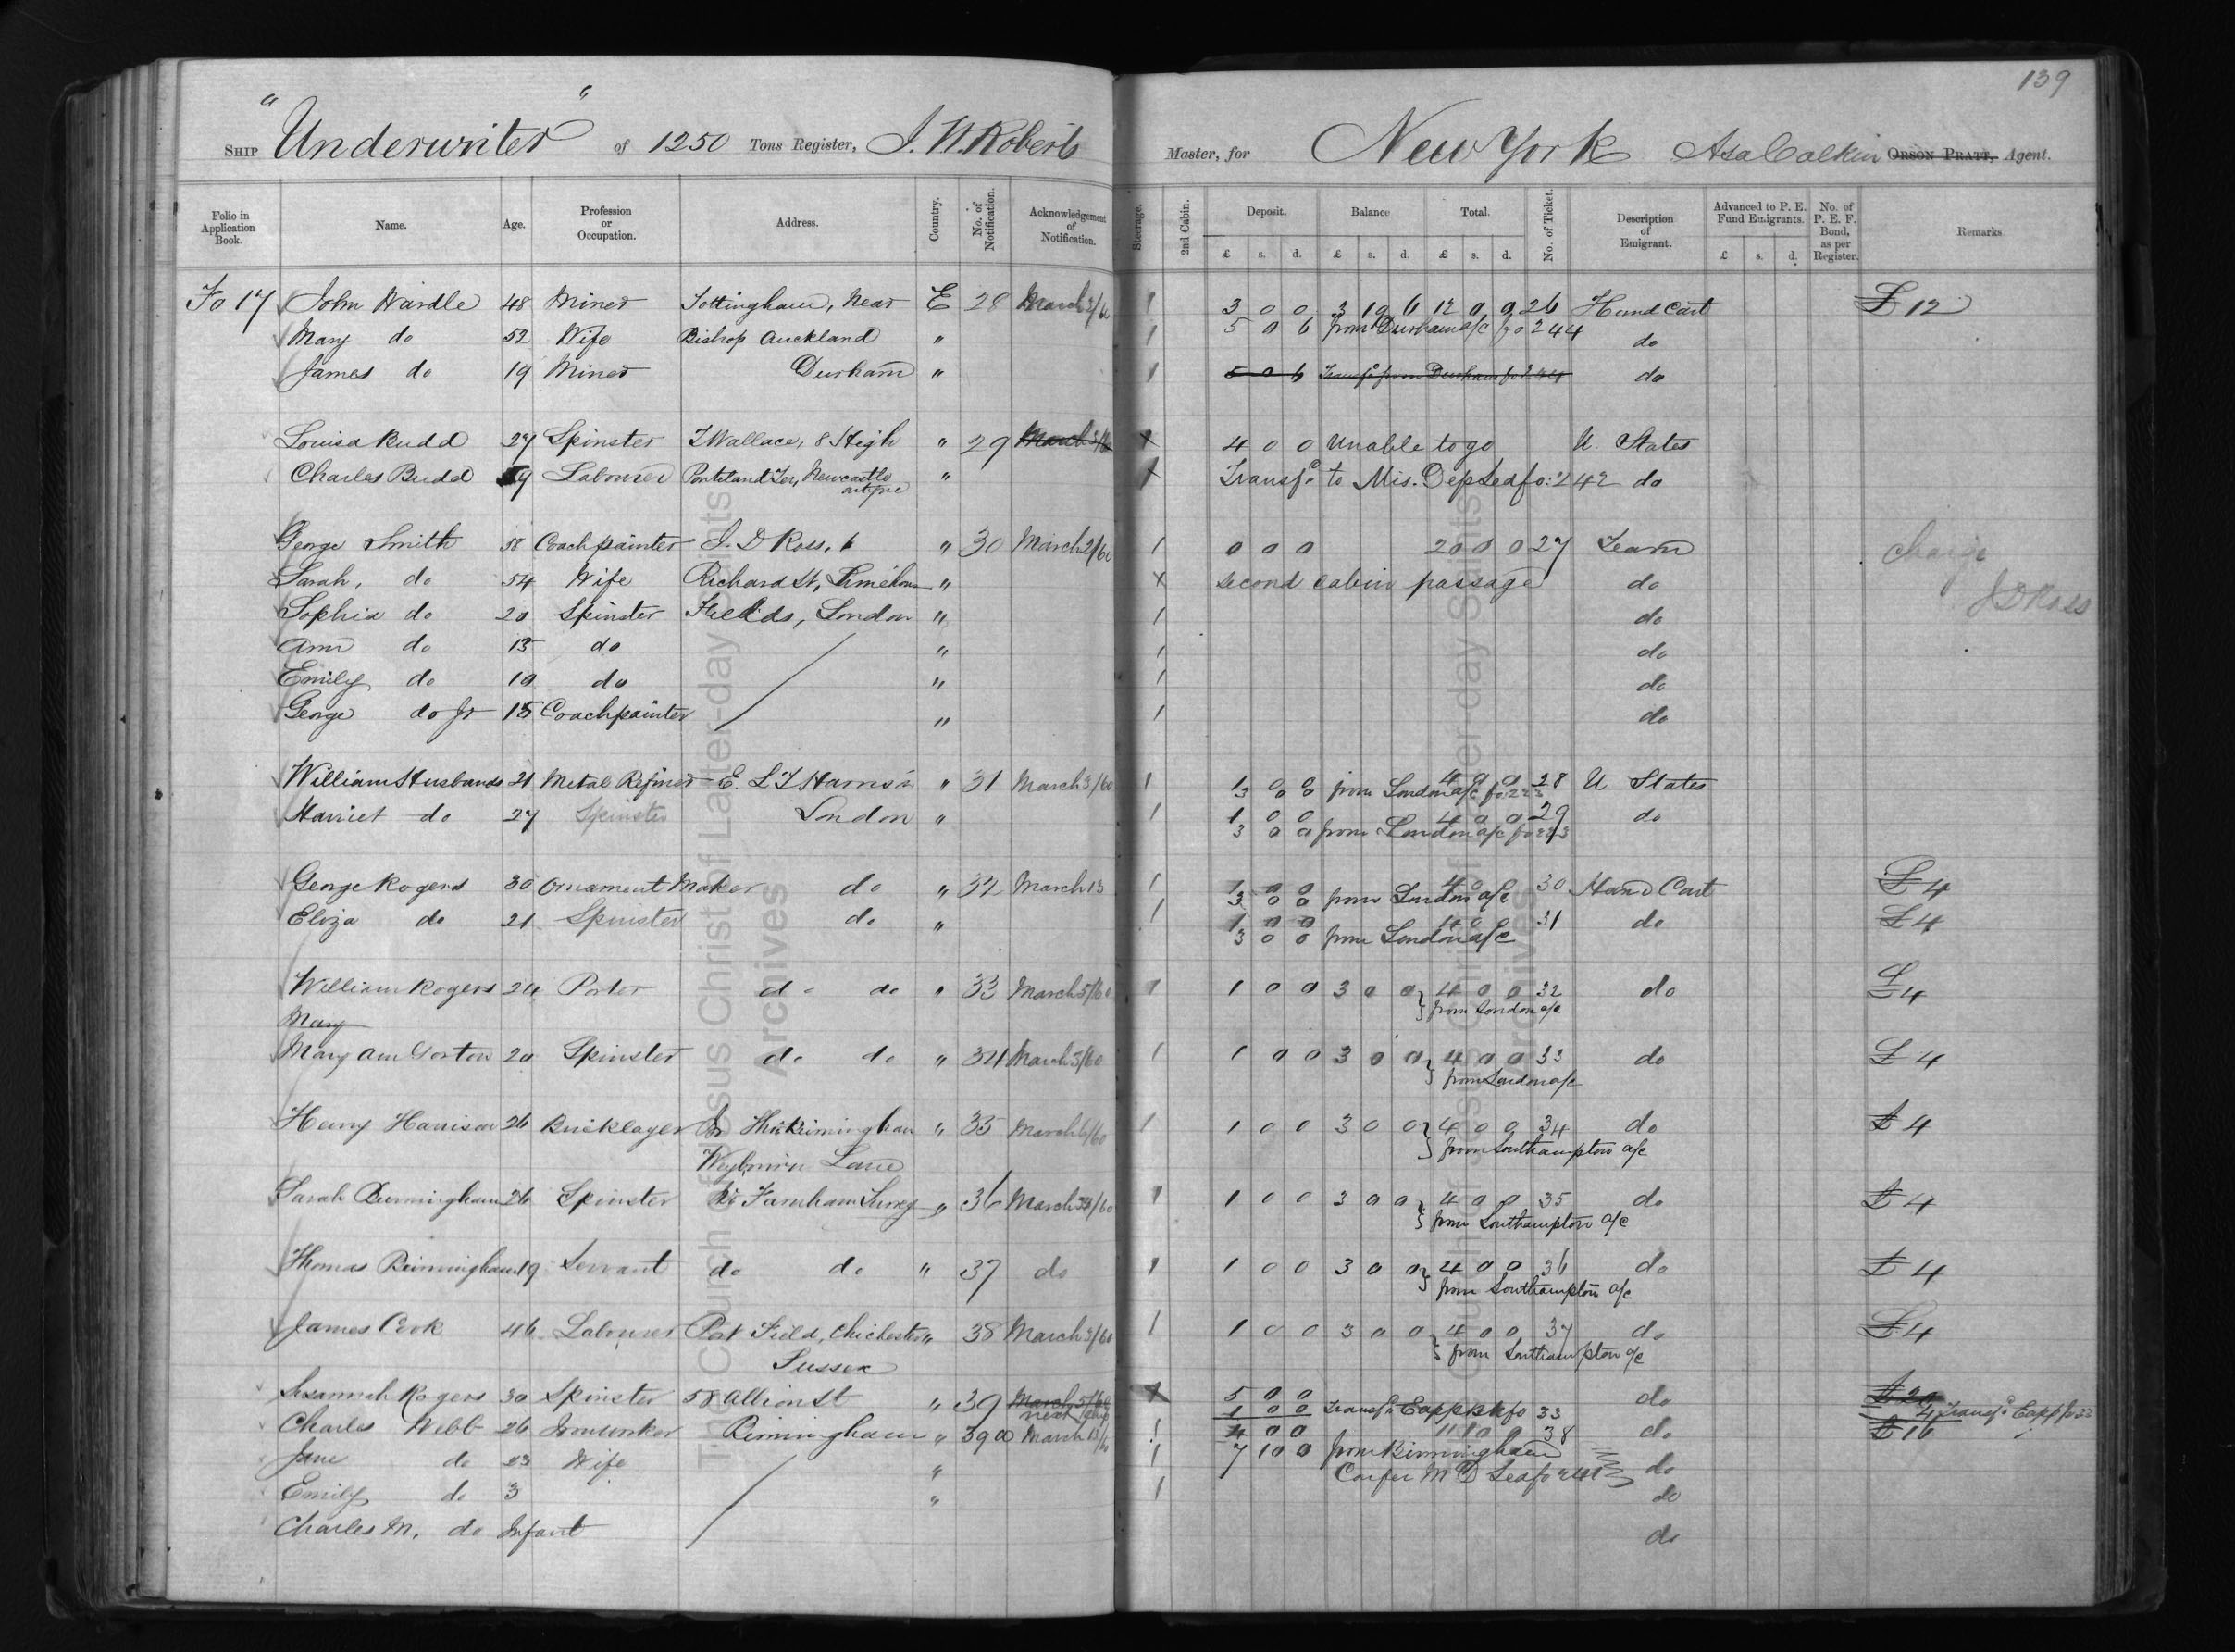 139
"Underwriter"
SHIP Underwriter of 1250 Tons Register, J. W. Roberts Master, for New York Asa Calkin ORSON PRATT, Agent.
Folio in Application Book. Name. Age. Profession or Occupation. Address. Country. No. of Notification. Acknowledgement of Notification. Steerage. 2nd Cabin. Deposit. Balance Total. No. of Ticket. Description of Emigrant. Advanced to P. E. Fund Emigrants. No. of P. E. F. Bond, as per Register. Remarks
£ s. d. £ s. d. £ s. d. £ s. d.
Fo 17 John Wardle 48 Miner Tottingham, Near E 28 March 2/60 1 3 0 0 3 19 6 12 0 0 26 Hand Cart £12
5 0 6 from Durham a/c fo 244
Mary do 52 Wife Bishop Auckland " 1 do
James do 19 Miner Durham " 1 5 0 6 Transfd from Durham fo 244 do
Louisa Budd 27 Spinster T Wallace, 8 High " 29 March X 4 0 0 Unable to go U. States
Charles Budd Labourer Ponteland Ter, Newcastle " X Transfd to Mis. Dep Led fo: 242 do
George Smith 58 Coach painter J. D Ross, 6 " 30 March 2/60 1 0 0 0 20 0 0 27 Team charge
Sarah, do 54 Wife Richard St, Limehouse " X second cabin passage do J D Ross
Sophia do 20 Spinster Fields, London " 1 do
Ann do 13 do " 1 do
Emily do 10 do " 1 do
George do Jr 15 Coachpainter " 1 do
William Husbands 21 Metal Refiner E. L T Harrison " 31 March 3/60 1 1 0 0 4 0 0 28 U States
3 0 0 from London a/c fo 223
Harriet do 27 Spinster London " 1 1 0 0 4 0 0 29 do
3 0 0 from London a/c fo 223
George Rogers 30 Ornament Maker do " 32 March 13 1 1 0 0 4 0 30 Hand Cart £4
3 0 0 from London a/c
Eliza do 21 Spinster do " 1 1 0 0 4 0 0 31 do £4
3 0 0 from London a/c
William Rogers 24 Porter do do " 33 March 5/60 1 1 0 0 3 0 0 4 0 0 32 do £4
from London a/c
Mary
Mary Ann Gorton 20 Spinster do do " 34 March 3/60 1 1 0 0 3 0 0 4 0 0 33 do £4
from London a/c
Henry Harrison 26 Bricklayer " 35 March 6/60 1 1 0 0 3 0 0 4 0 0 34 do £4
Lane from Southampton a/c
Sarah Birmingham 26 Spinster Nr Farnham Surrey " 36 March 1 1 0 0 3 0 0 4 0 0 35 do £4
from Southampton a/c
Thomas Birmingham 19 Servant do do " 37 do 1 1 0 0 3 0 0 4 0 0 36 do £4
from Southampton a/c
James Cook 46 Labourer Port Field, Chichester " 38 March 3/60 1 1 0 0 3 0 0 4 0 0 37 do £4
Sussex from Southampton a/c
Susannah Rogers 30 Spinster 58 Allion St " 39 March 5/60 X 5 0 0 do £20
next ship 1 0 0 Transfd E app Bk fo 33 4 Transfd E app fo 33
Charles Webb 26 Ironworker Birmingham " 39a March 13/60 1 4 0 0 11 10 0 38 do £16
Jane do 23 Wife " 1 7 10 0 from Birmingham do
Emily do 3 " 1 Confer M D Lea fo do
Charles M. do Infant do